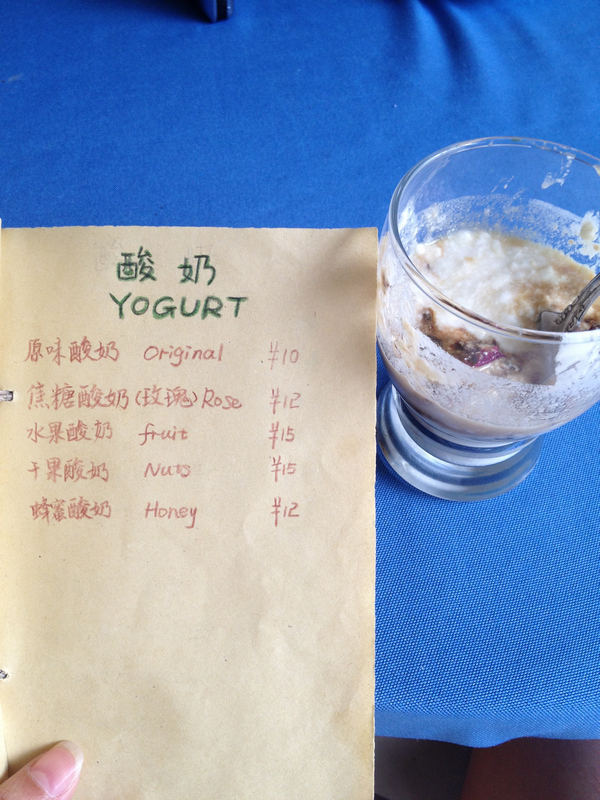 酸奶
YOGURT
原味酸奶 Original ¥10
焦糖酸奶(玫瑰)Rose ¥12
水果酸奶 fruit ¥15
干果酸奶 Nuts ¥15
蜂蜜酸奶 Honey ¥12